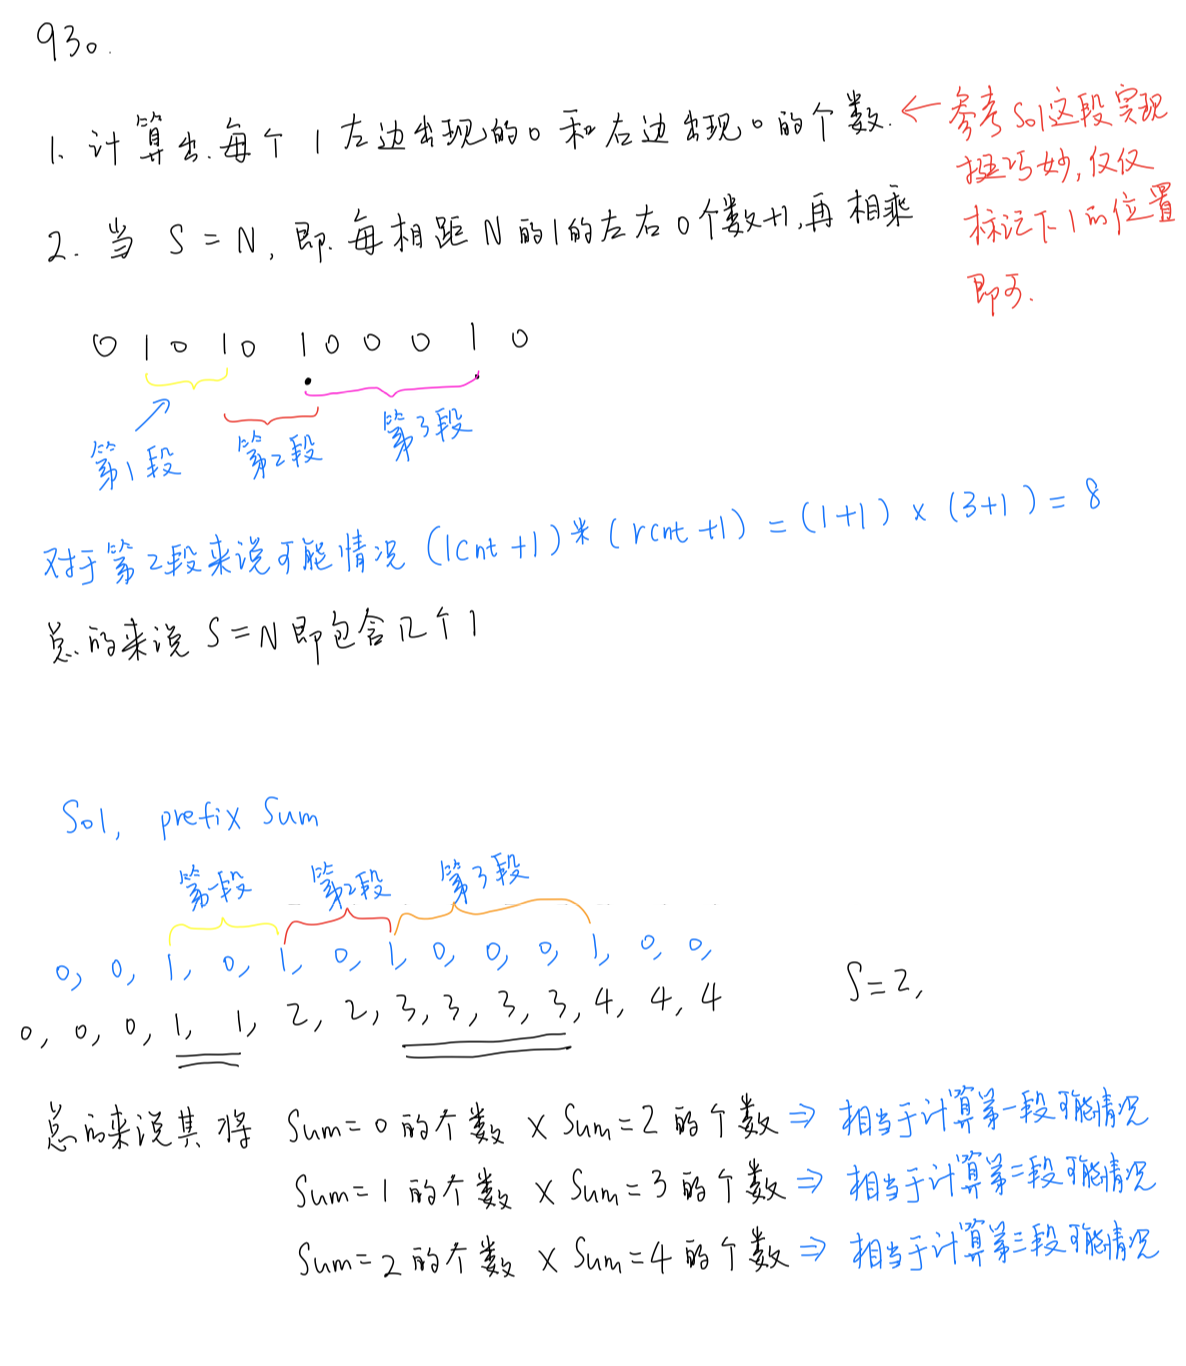 930.
1. 计算出.每个1左边出现的0和右边出现0的个数.
← 参考Sol这段实现
挺巧妙,仅仅
标记下1的位置
即可.
2. 当 S=N, 即.每相距N的1的左右0个数+1,再相乘
0 1 0 1 0 1 0 0 0 1 0
第1段 第2段 第3段
对于第2段来说可能情况 (lcnt+1)*(rcnt+1) = (1+1) × (3+1) = 8
总的来说 S=N即包含几个1
Sol, prefix Sum
第一段 第2段 第3段
0, 0, 1, 0, 1, 0, 1, 0, 0, 0, 1, 0, 0,
0, 0, 0, 1, 1, 2, 2, 3, 3, 3, 3, 4, 4, 4
S=2,
总的来说其将 Sum=0的个数 × Sum=2的个数 ⇒ 相当于计算第一段可能情况
Sum=1的个数 × Sum=3的个数 ⇒ 相当于计算第二段可能情况
Sum=2的个数 × Sum=4的个数 ⇒ 相当于计算第三段可能情况